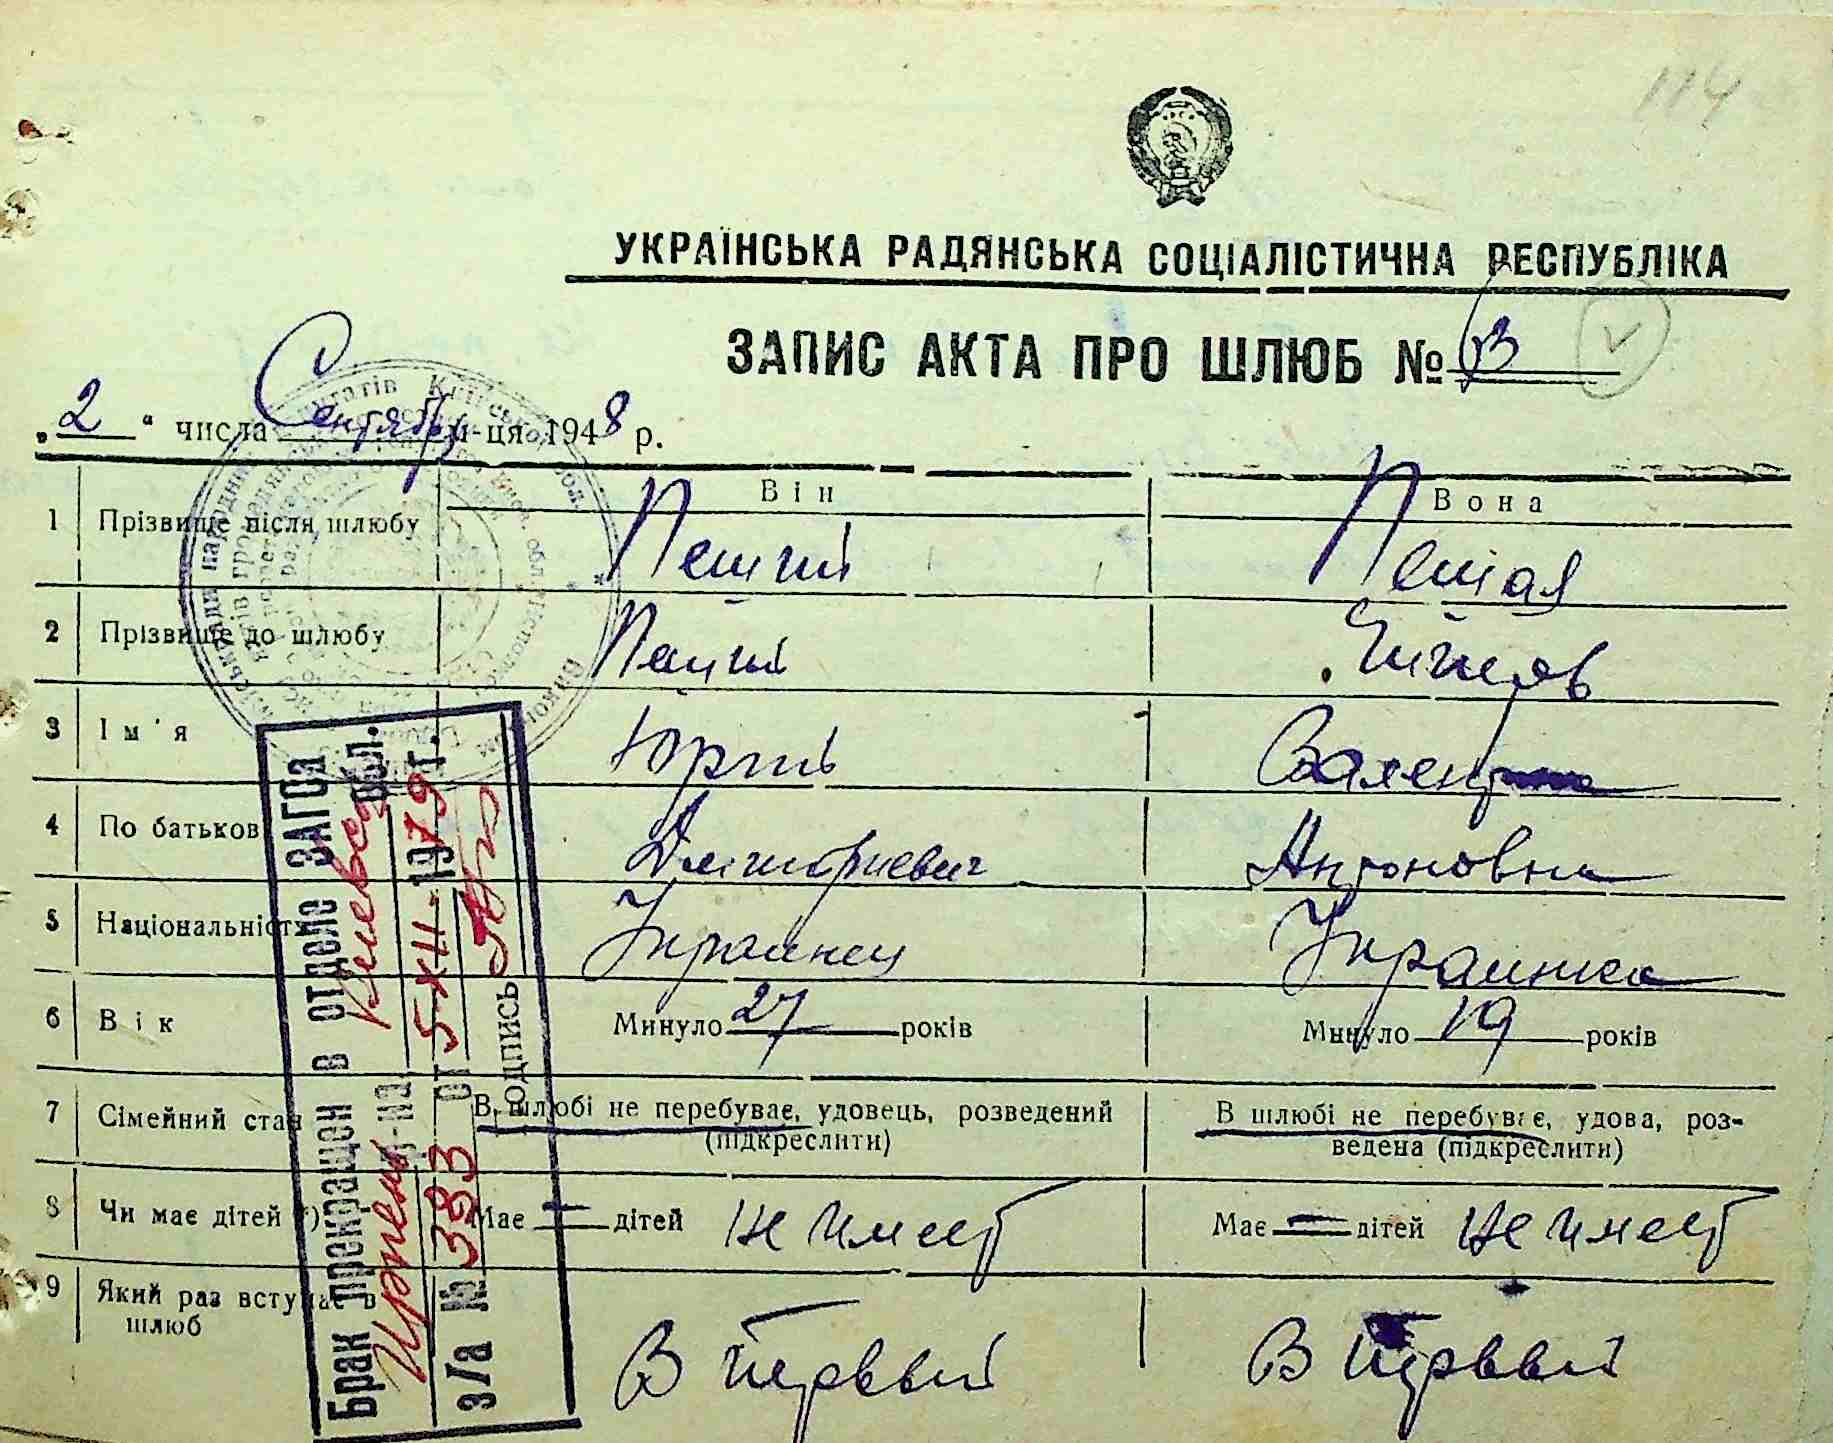 114
УКРАЇНСЬКА РАДЯНСЬКА СОЦІАЛІСТИЧНА РЕСПУБЛІКА
ЗАПИС АКТА ПРО ШЛЮБ № 13
„2“ числа Сентября м-ця 1948 р.
Він Вона
1 Прізвище після шлюбу Пеший Пешая
2 Прізвище до шлюбу Пеший
3 Ім'я Юрий Валентина
4 По батькові Дмитриевич Антоновна
5 Національність Украинец Украинка
6 Вік Минуло 27 років Минуло 19 років
7 Сімейний стан В шлюбі не перебуває, удовець, розведений (підкреслити) В шлюбі не перебуває, удова, роз-
ведена (підкреслити)
8 Чи має дітей *) Має — дітей не имеет Має — дітей не имеет
9 Який раз вступає в
шлюб В первый В первый
Брак прекращен в отделе ЗАГСа
Ирпень р-на Киевской обл.
з/а № 383 от 5-XII-1979 г.
подпись